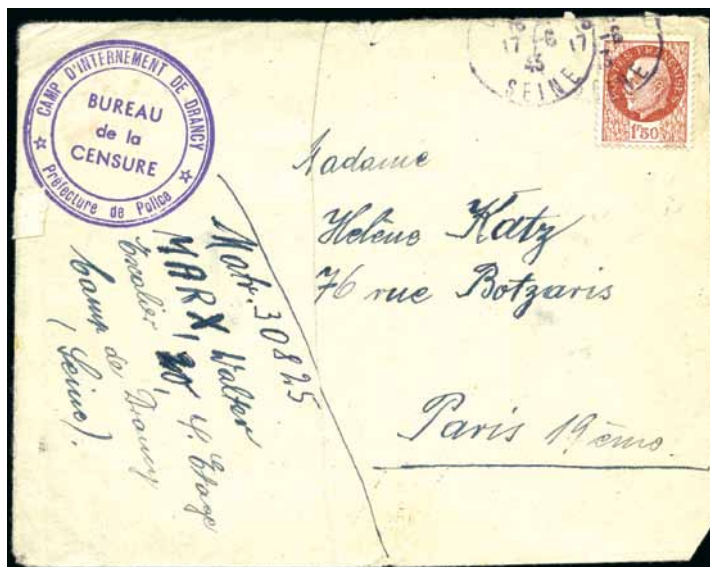 CAMP D'INTERNEMENT DE DRANCY
BUREAU
de la
CENSURE
Préfecture de Police
17 6
43
SEINE
1F50
Madame
Helène Katz
76 rue Botzaris
Paris 19ème.
Matr. 30825
MARX, Walter
Escalier 20, 4. Etage
Camp de Drancy
(Seine).